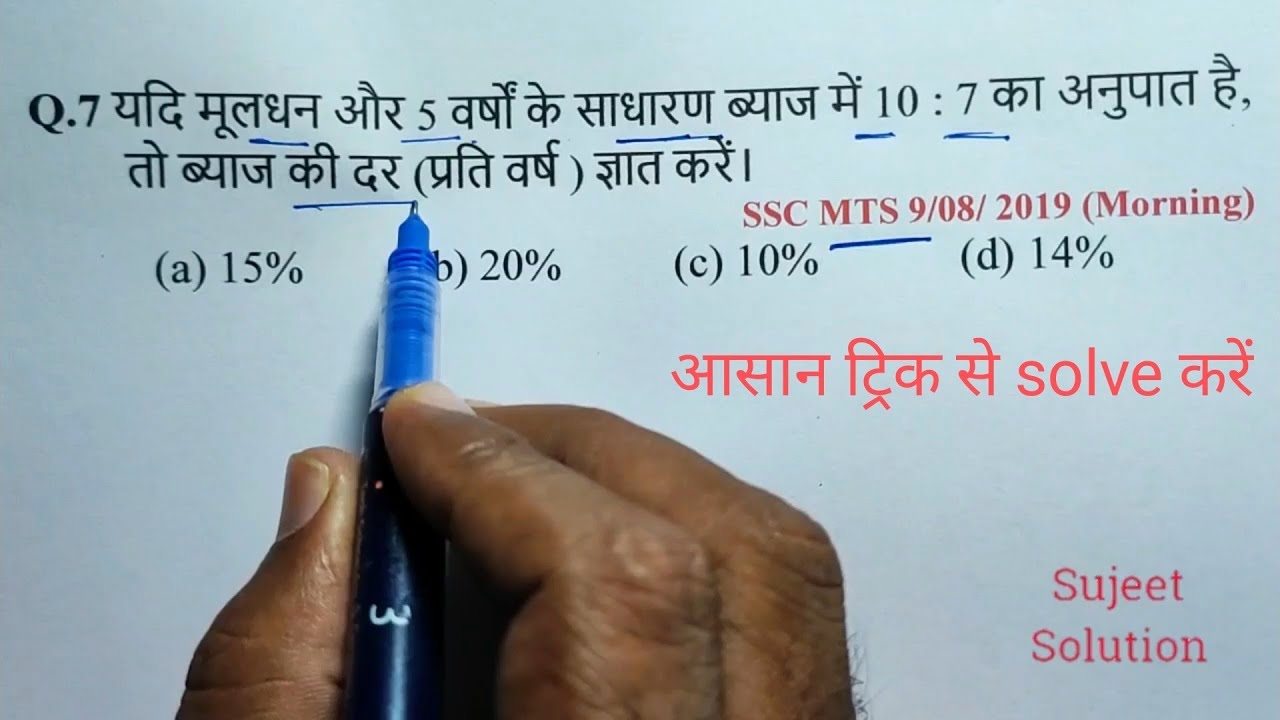 Q.7 यदि मूलधन और 5 वर्षों के साधारण ब्याज में 10 : 7 का अनुपात है,
तो ब्याज की दर (प्रति वर्ष ) ज्ञात करें।
SSC MTS 9/08/ 2019 (Morning)
(a) 15% b) 20% (c) 10% (d) 14%
आसान ट्रिक से solve करें
Sujeet
Solution